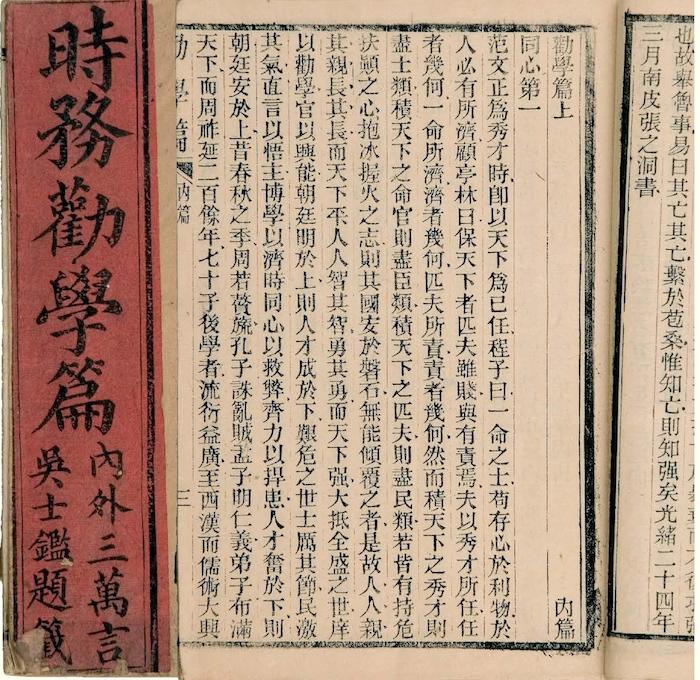 時務勸學篇
內外三萬言
吳士鑑題籤
也故舉魯事易曰其亡其亡繫於苞桑惟知亡則知强矣光緒二十四年
三月南皮張之洞書
勸學篇上 內篇
同心第一
范文正爲秀才時卽以天下爲已任程子曰一命之士苟存心於利物於
人必有所濟顧亭林曰保天下者匹夫雖賤與有責焉夫以秀才所任任
者幾何一命所濟濟者幾何匹夫所責責者幾何然而積天下之秀才則
盡士類積天下之命官則盡臣類積天下之匹夫則盡民類若皆有持危
扶顚之心抱冰握火之志則其國安於磐石無能傾覆之者是故人人親
其親長其長而天下平人人智其智勇其勇而天下强大抵全盛之世庠
以勸學官以興能朝廷明於上則人才成於下艱危之世士厲其節民激
其氣直言以悟主博學以濟時同心以救弊齊力以捍患人才奮於下則
朝廷安於上昔春秋之季周若贅旒孔子誅亂賊孟子明仁義弟子布滿
天下而周祚延二百餘年七十子後學者流衍益廣至西漢而儒術大興
勸學篇 內篇 三